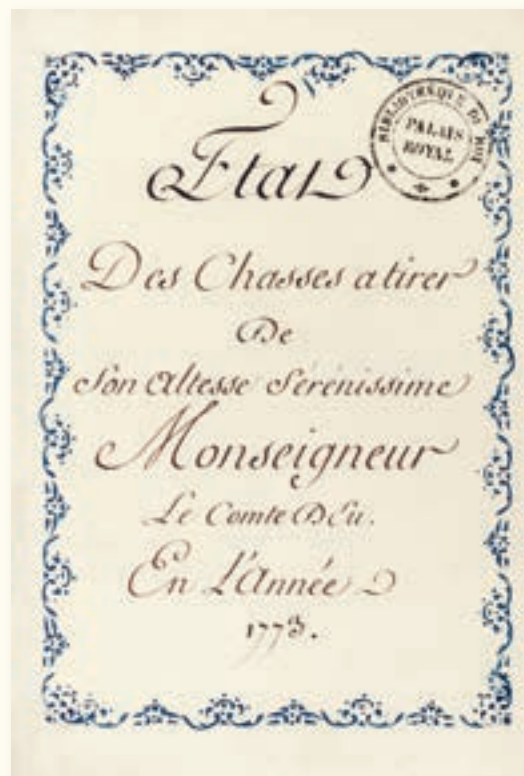 Etat
BIBLIOTHEQUE DU ROI
PALAIS
ROYAL
Des Chasses a tirer
De
Son Altesse Sérénissime
Monseigneur
Le Comte D'Eu.
En L'Année
1773.